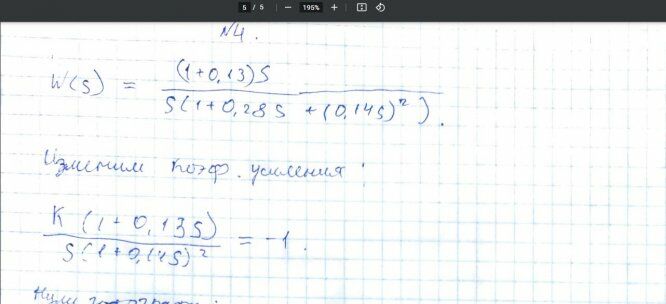 5 / 5 195%
№4.
W(s) = (1+0,13)s / s(1+0,28s + (0,14s)²).
Изменим коэф. усиления:
K (1 + 0,13s) / s(1+0,14s)² = -1.
Нули